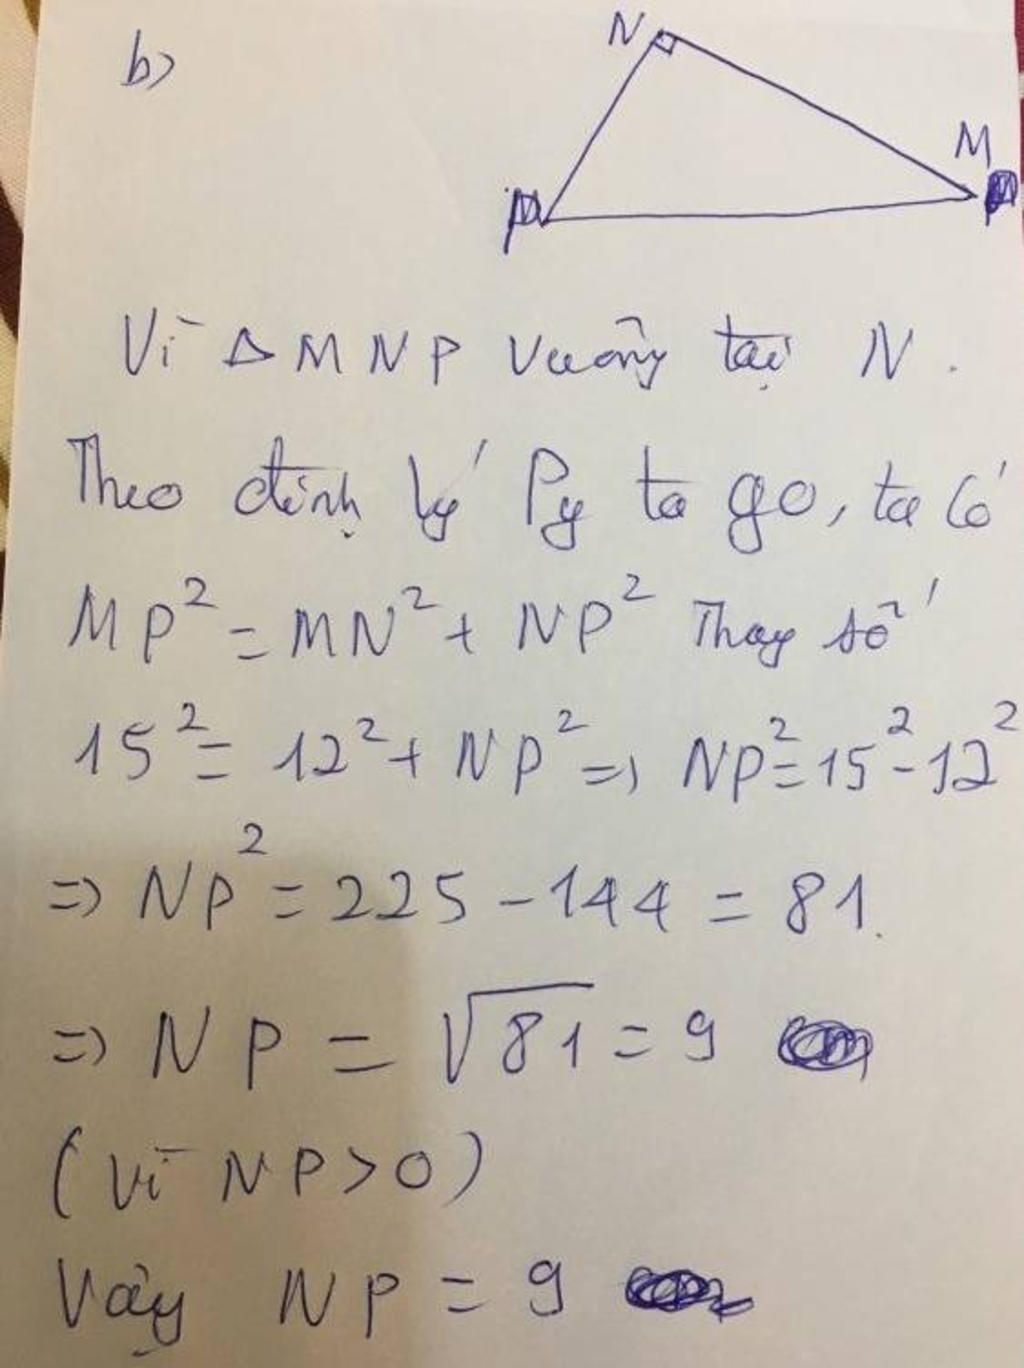 b)
N
M
P
Vì Δ M N P Vuông tại N.
Theo định lý Py ta go, ta có
MP² = MN² + NP² Thay số
15² = 12² + NP² => NP² = 15² - 12²
=> NP² = 225 - 144 = 81.
=> NP = √81 = 9
(Vì NP > 0)
Vậy NP = 9